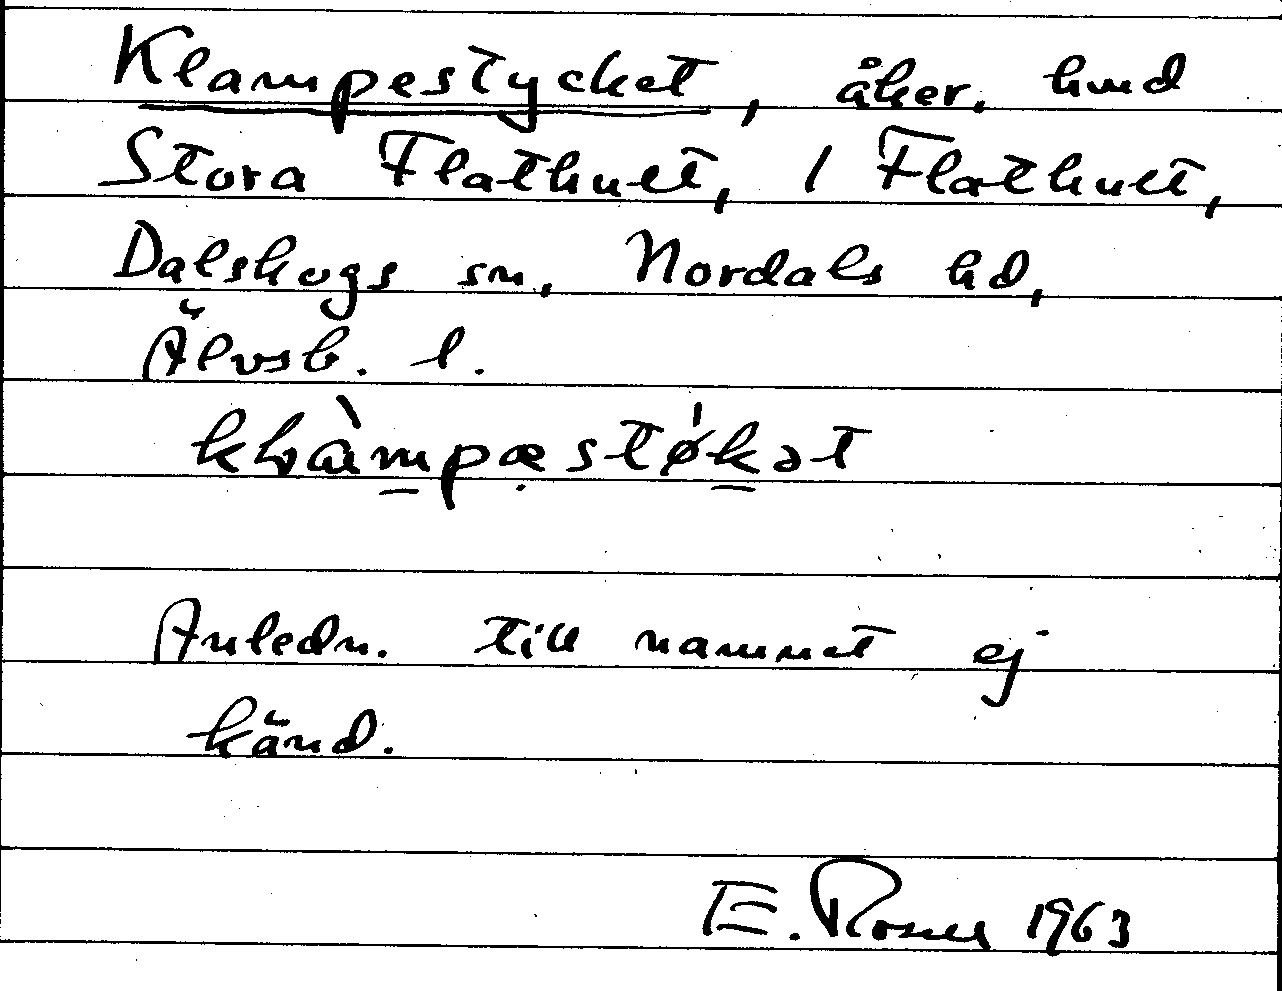 Klampestycket, åker. hmd
Stora Flathult, 1 Flathult,
Dalskogs sn, Nordals hd,
Älvsb. l.
Anledn. till namnet ej
känd.
E. Rosell 1963